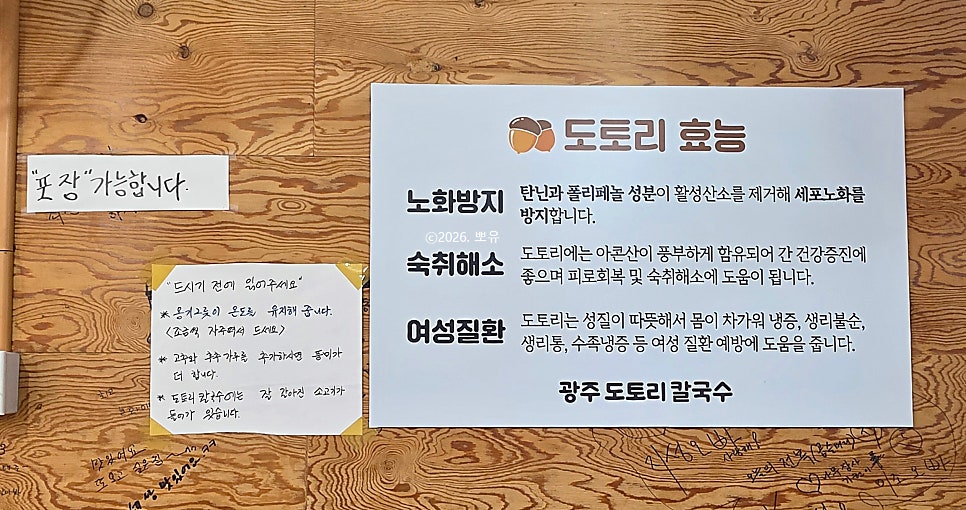 "포장"가능합니다.
"드시기 전에 읽어주세요"
* 옹기그릇이 온도를 유지해 줍니다.
<조금씩 자주여서 드세요>
* 고추와 후추가루를 추가하시면 풍미가
더 합니다.
* 도토리칼국수에는 잘 갈아진 소고기가
들어가 있습니다.
도토리 효능
노화방지
탄닌과 폴리페놀 성분이 활성산소를 제거해 세포노화를
방지합니다.
©2026. 뽀유
숙취해소
도토리에는 아콘산이 풍부하게 함유되어 간 건강증진에
좋으며 피로회복 및 숙취해소에 도움이 됩니다.
여성질환
도토리는 성질이 따뜻해서 몸이 차가워 냉증, 생리불순,
생리통, 수족냉증 등 여성 질환 예방에 도움을 줍니다.
광주 도토리 칼국수
맛있어요
맛있어요